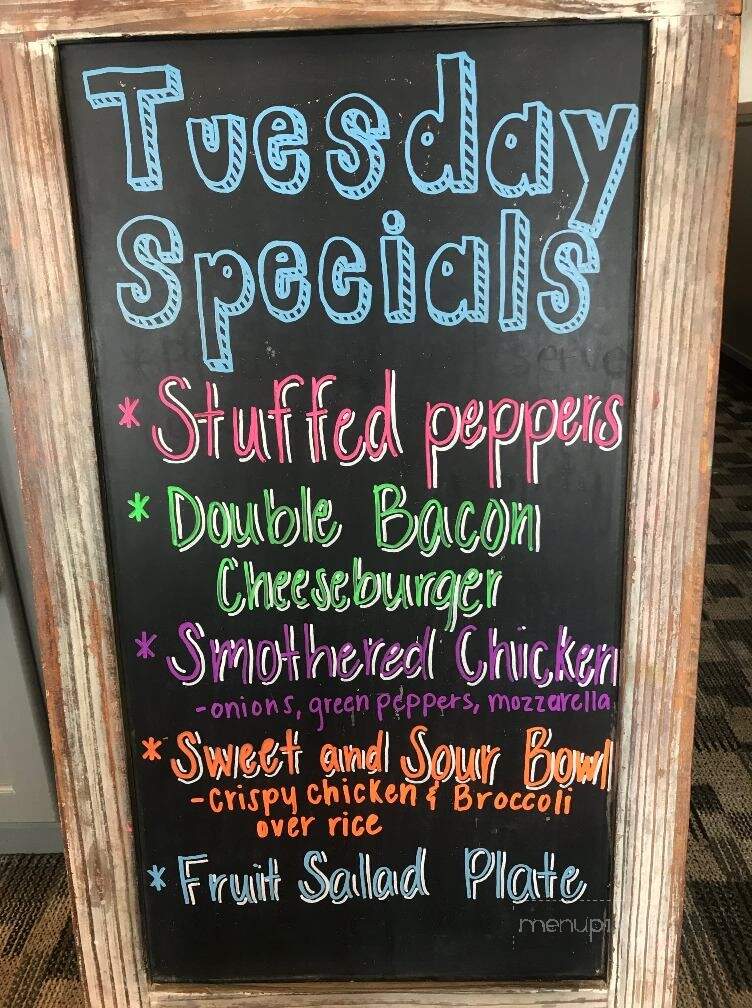 Tuesday
Specials
* Stuffed peppers
* Double Bacon
Cheeseburger
* Smothered Chicken
- onions, green peppers, mozzarella
* Sweet and Sour Bowl
- crispy chicken & Broccoli
over rice
* Fruit Salad Plate